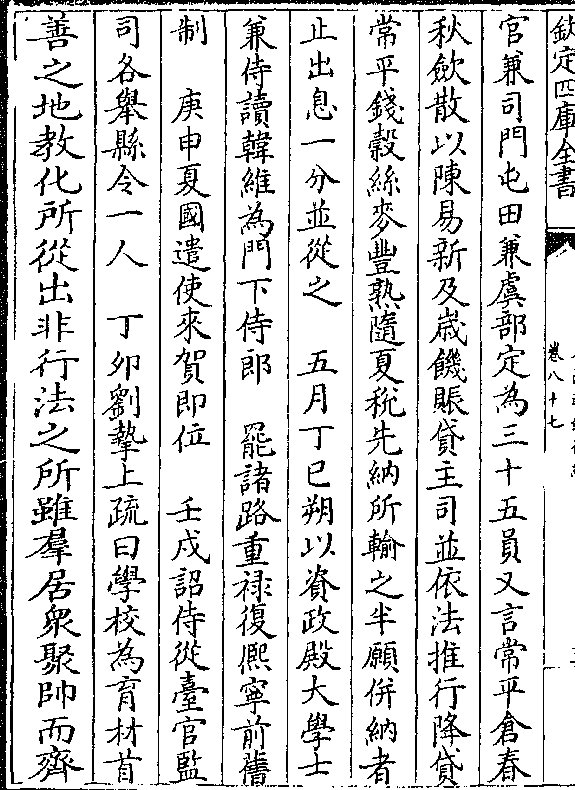 欽定四庫全書
卷八十七
官兼司門屯田兼虞部定為三十五員又言常平倉春
秋斂散以陳易新及歲饑賑貸主司並依法推行降貸
常平錢糓絲麥豐熟隨夏稅先納所輸之半願併納者
止出息一分並從之　五月丁巳朔以資政殿大學士
兼侍讀韓維為門下侍郎　罷諸路重禄復熙寧前舊
制　庚申夏國遣使來賀即位　壬戌詔侍從臺官監
司各舉縣令一人　丁卯劉摯上疏曰學校為育材首
善之地教化所從出非行法之所雖羣居衆聚帥而齊